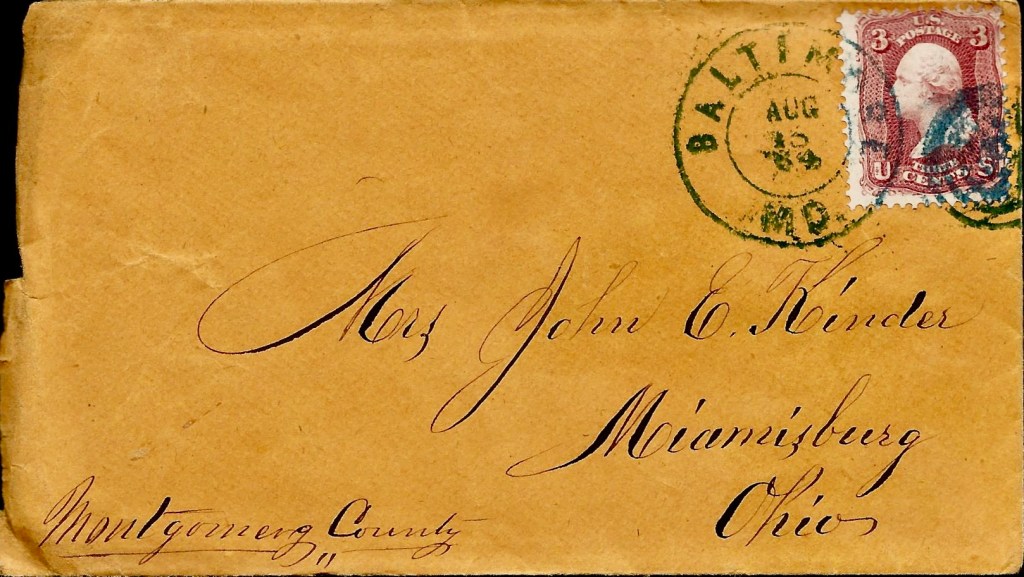 BALTIM
AUG
MD.
U.S.
POSTAGE
3 3
U S
CENTS
Mrs John E. Kinder
Miamisburg
Ohio
Montgomery County